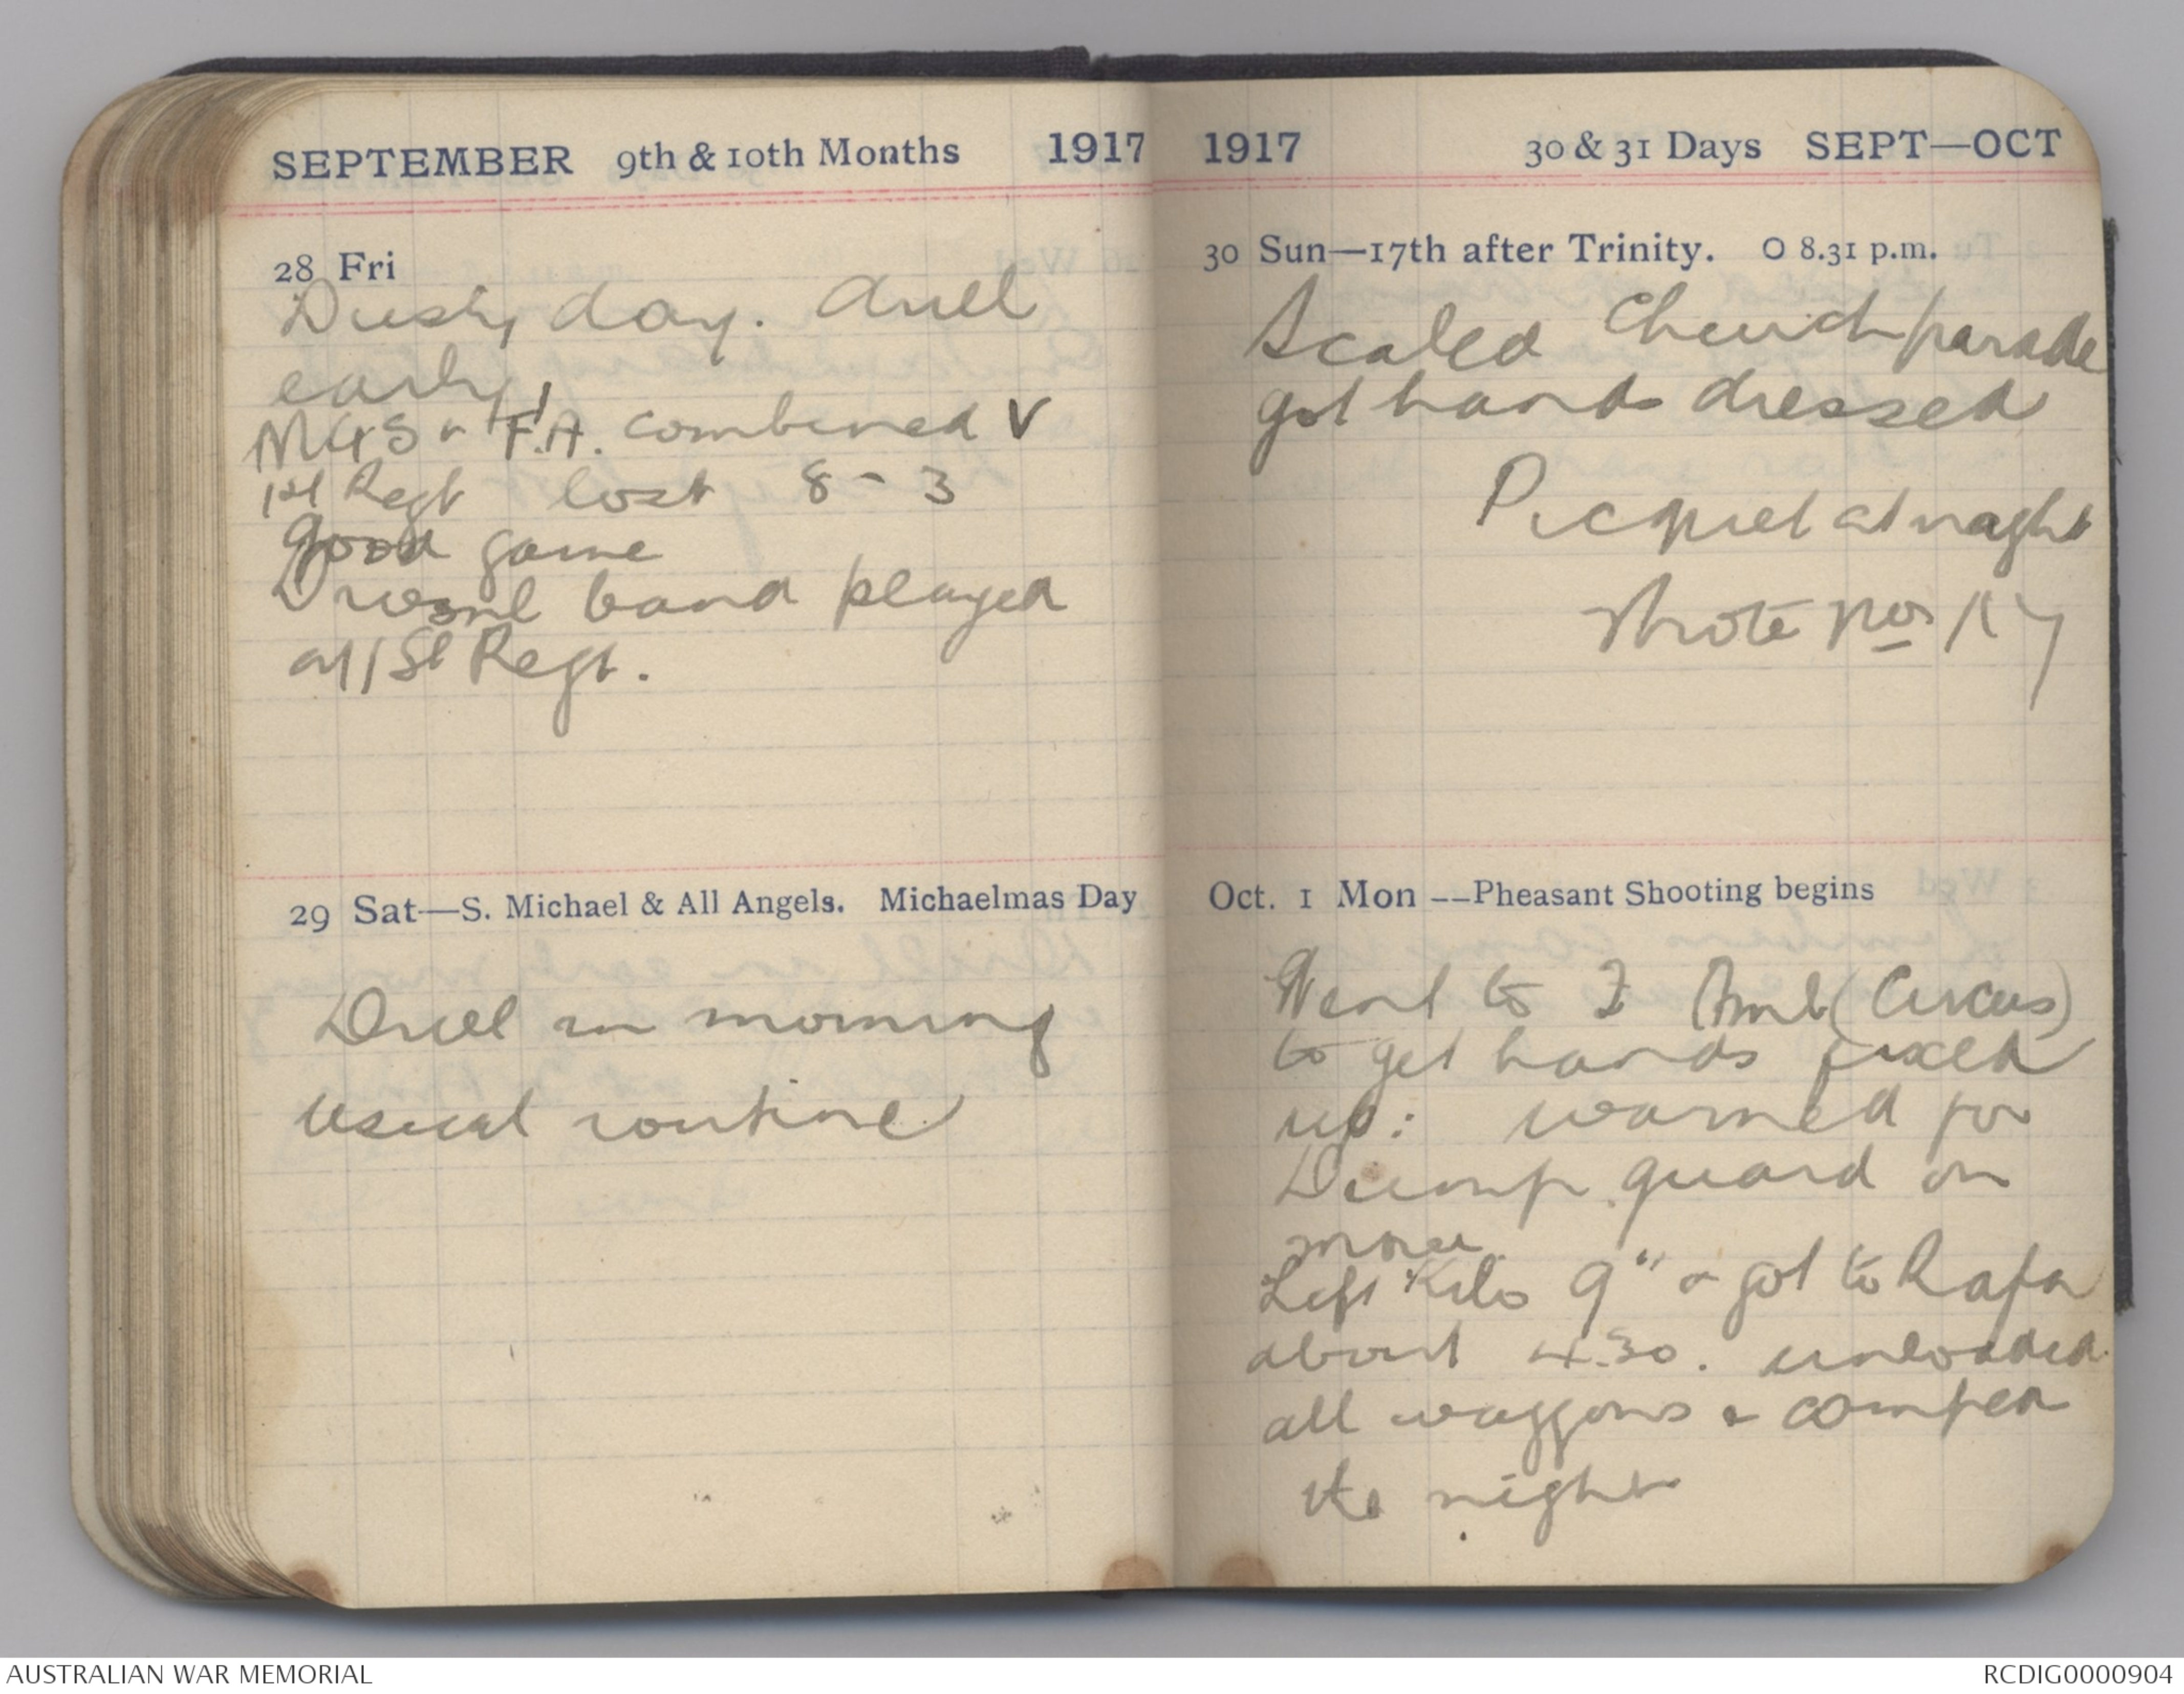 SEPTEMBER 9th & 10th Months 1917
28 Fri
Dusty day. drill
early
MGS & F.A. combined V
1st Regt lost 8 - 3
good game
Divisnl band played
at 1st Regt.
29 Sat—S. Michael & All Angels. Michaelmas Day
Drill in morning
usual routine
1917 30 & 31 Days SEPT—OCT
30 Sun—17th after Trinity. O 8.31 p.m.
Scaled Church parade
got hands dressed
Picquet at night
Wrote No 17
Oct. 1 Mon —Pheasant Shooting begins
Went to F Amb (Circus)
to get hands fixed
up: warned for
Dump guard on
move
Left Kilo 9" & got to Rafa
about 4.30. unloaded
all waggons & camped
the night
AUSTRALIAN WAR MEMORIAL
RCDIG0000904